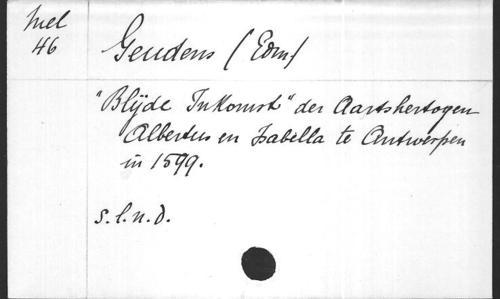 Mel
46
Geudens (Edm)
"Blijde Inkomst" der Aartshertogen
Albertus en Isabella te Antwerpen
in 1599.
s.l.n.d.